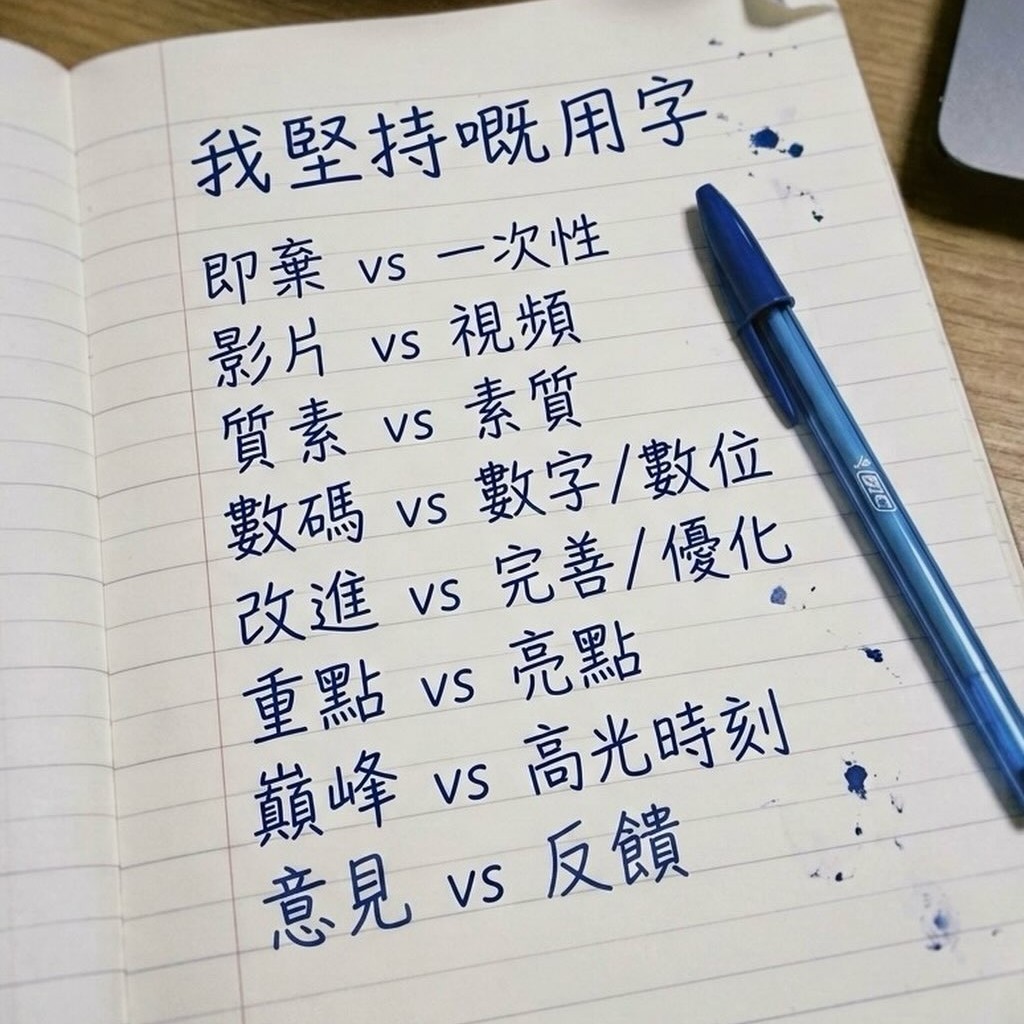 我堅持嘅用字
即棄 vs 一次性
影片 vs 視頻
質素 vs 素質
數碼 vs 數字/數位
改進 vs 完善/優化
重點 vs 亮點
巔峰 vs 高光時刻
意見 vs 反饋
BIC